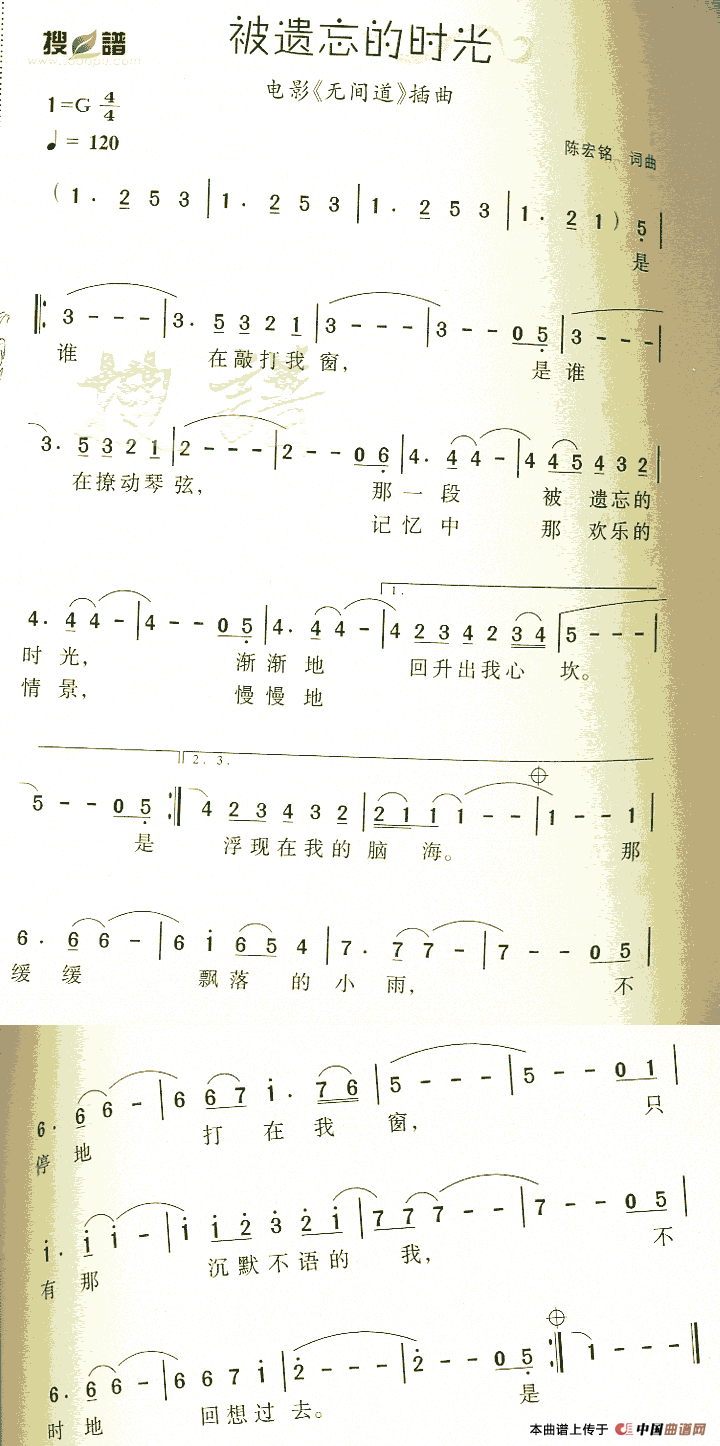 搜 譜
www.sooopu.com
被遗忘的时光
电影《无间道》插曲
1=G 4/4
♩= 120
陈宏铭 词曲
( 1 . 2 5 3 | 1 . 2 5 3 | 1 . 2 5 3 | 1 . 2 1 ) 5 |
是
‖: 3 - - - | 3 . 5 3 2 1 | 3 - - - | 3 - - 0 5 | 3 - - - |
谁 在敲打我窗， 是谁
3 . 5 3 2 1 | 2 - - - | 2 - - 0 6 | 4 . 4 4 - | 4 4 5 4 3 2 |
在撩动琴弦， 那一段 被遗忘的
记忆中 那欢乐的
1.
4 . 4 4 - | 4 - - 0 5 | 4 . 4 4 - | 4 2 3 4 2 3 4 | 5 - - - |
时光， 渐渐地 回升出我心坎。
情景， 慢慢地
2. 3.
5 - - 0 5 :‖ 4 2 3 4 3 2 | 2 1 1 1 - - | 1 - - 1 |
是 浮现在我的脑海。 那
6 . 6 6 - | 6 i 6 5 4 | 7 . 7 7 - | 7 - - 0 5 |
缓缓 飘落的小雨， 不
6 . 6 6 - | 6 6 7 i . 7 6 | 5 - - - | 5 - - 0 1 |
停地 打在我窗， 只
i . i i - | i i 2 3 2 i | 7 7 7 - - | 7 - - 0 5 |
有那 沉默不语的我， 不
6 . 6 6 - | 6 6 7 i | 2 - - - | 2 - - 0 5 :‖ 1 - - - ‖
时地 回想过去。 是
本曲谱上传于 中国曲谱网